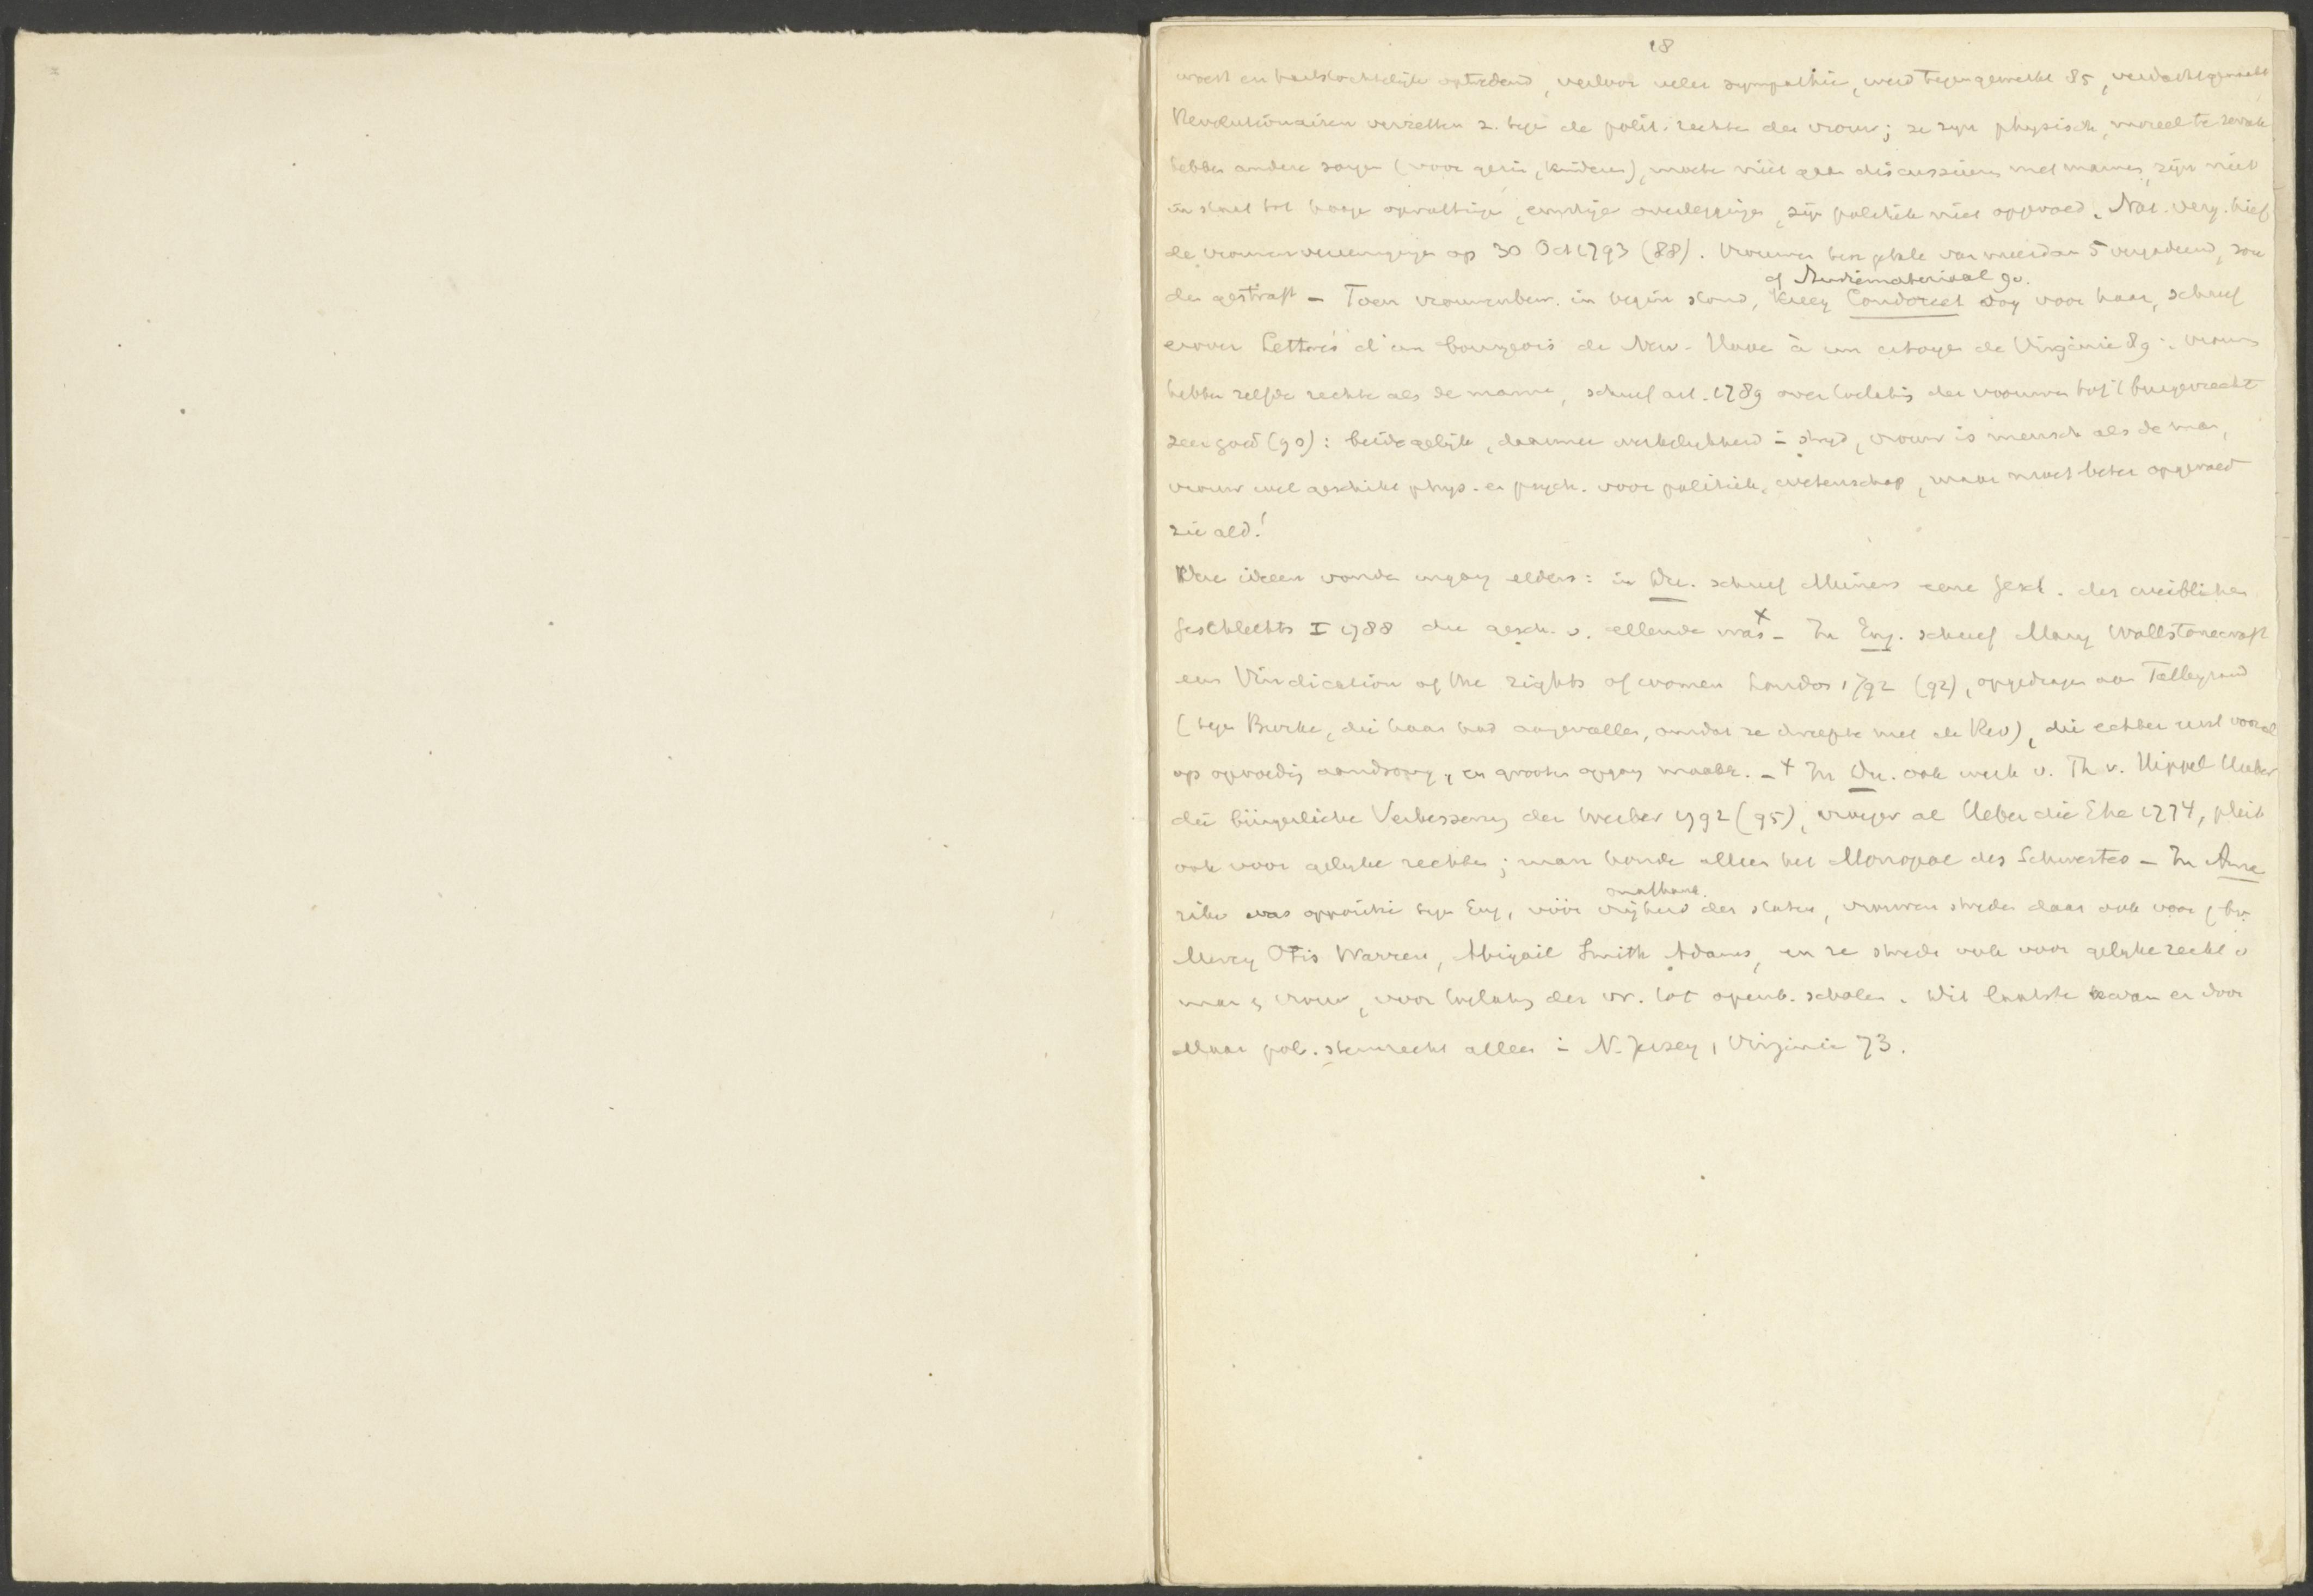 18
woest en hartstochtelijk optredend, verloor veler sympathie, werd tegengewerkt 85, verdacht gemaakt
Revolutionairen verzetten z. tegen de polit. rechten der vrouw; ze zijn physisch, moreel te zwak
hebben andere zorgen (voor gezin, kinderen), moeten niet gaan discussieren met mannen, zijn niet
in staat tot hooge opvattingen, ernstige overleggingen, zijn politiek niet opgevoed. Nat. verg. hief
de vrouwenvereenigingen op 30 Oct 1793 (88). Vrouwen ten getale van meer dan 5 vergaderend, zou
of Studiematerial 90.
den gestraft – Toen vrouwenbew. in begin stond, kreeg Condorcet oog voor haar, schreef
erover Lettres d'un bourgeois de New-Have à un citoyen de Virginie 89: vrouwen
hebben zelfde rechten als de mannen, schreef art. 1789 over toelating der vrouwen tot 't burgerrecht
zeer goed (90): beide gelijk, daarmee werkelijkheid in strijd, vrouw is mensch als de man,
vrouw wel geschikt phys. en psych. voor politiek, wetenschap, maar moet beter opgevoed
zie ald!
Deze ideeen vonden ingang elders: in Du. schreef Meiners eene Gesch. des weiblichen
Geschlechts I 1788 die gesch. v. ellende was x – In Eng. schreef Mary Wollstonecraft
een Vindication of the rights of women London 1792 (92), opgedragen aan Talleyrand
(tegen Burke, die haar had aangevallen, omdat ze dweepte met de Rev), die echter rust vooral
op opvoeding aandrong, en grooten opgang maakte. – x In Du. ook werk v. Th v. Hippel Ueber
die bürgerliche Verbesserung der Weiber 1792 (95), vroeger al Ueber die Ehe 1774, pleit
ook voor gelijke rechten; man houde alleen het Monopol des Schwertes – In Ame
onafhank.
rika was oppositie tegen Eng, vóór vrijheid der staten, vrouwen streden daar ook voor, bv.
Mercy Otis Warren, Abigail Smith Adams, en ze streden ook voor gelijke recht v
man & vrouw, voor toelating der vr. tot openb. scholen. Dit laatste kwam er door
Maar pol. stemrecht alleen in N. Jersey, Virginie 73.